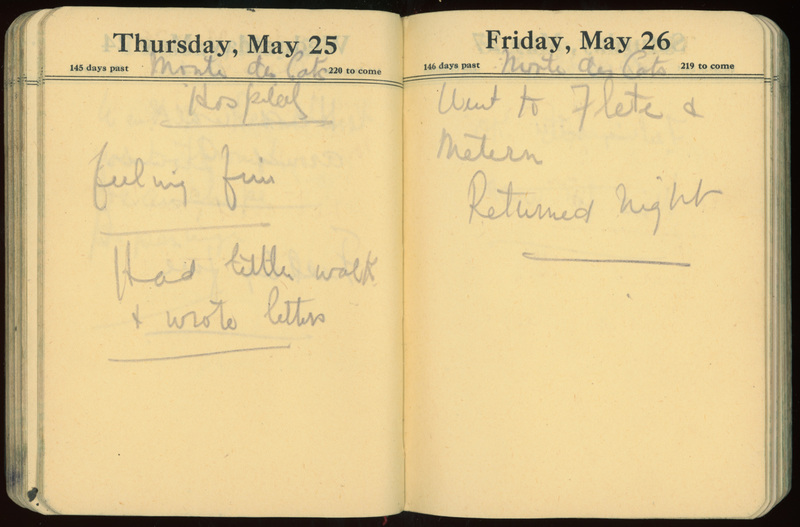 Thursday, May 25
145 days past
220 to come
Monte des Cats
Hospital
feeling fine
Had little walk
& wrote letters
Friday, May 26
146 days past
219 to come
Monte des Cats
Went to Flete &
Metern
Returned Night